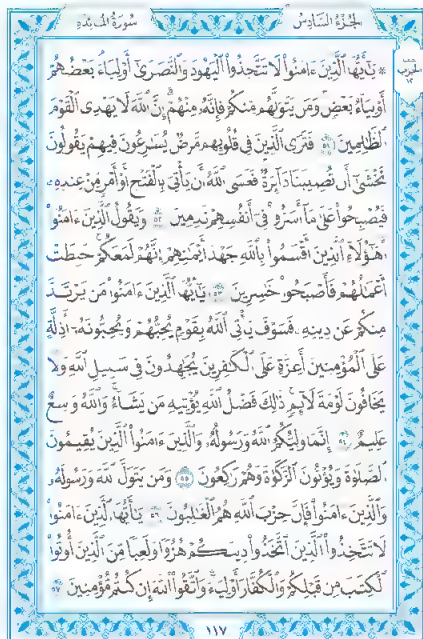 سُورَةُ المَائِدَةِ
الجُزْءُ السَّادِسُ
الحِزْبُ
١٢
۞ يَـٰٓأَيُّهَا ٱلَّذِينَ ءَامَنُوا۟ لَا تَتَّخِذُوا۟ ٱلْيَهُودَ وَٱلنَّصَـٰرَىٰٓ أَوْلِيَآءَ ۘ بَعْضُهُمْ
أَوْلِيَآءُ بَعْضٍ ۚ وَمَن يَتَوَلَّهُم مِّنكُمْ فَإِنَّهُۥ مِنْهُمْ ۗ إِنَّ ٱللَّهَ لَا يَهْدِى ٱلْقَوْمَ
ٱلظَّـٰلِمِينَ ٥١ فَتَرَى ٱلَّذِينَ فِى قُلُوبِهِم مَّرَضٌ يُسَـٰرِعُونَ فِيهِمْ يَقُولُونَ
نَخْشَىٰٓ أَن تُصِيبَنَا دَآئِرَةٌ ۚ فَعَسَى ٱللَّهُ أَن يَأْتِىَ بِٱلْفَتْحِ أَوْ أَمْرٍ مِّنْ عِندِهِۦ
فَيُصْبِحُوا۟ عَلَىٰ مَآ أَسَرُّوا۟ فِىٓ أَنفُسِهِمْ نَـٰدِمِينَ ٥٢ وَيَقُولُ ٱلَّذِينَ ءَامَنُوٓا۟
أَهَـٰٓؤُلَآءِ ٱلَّذِينَ أَقْسَمُوا۟ بِٱللَّهِ جَهْدَ أَيْمَـٰنِهِمْ ۙ إِنَّهُمْ لَمَعَكُمْ ۚ حَبِطَتْ
أَعْمَـٰلُهُمْ فَأَصْبَحُوا۟ خَـٰسِرِينَ ٥٣ يَـٰٓأَيُّهَا ٱلَّذِينَ ءَامَنُوا۟ مَن يَرْتَدَّ
مِنكُمْ عَن دِينِهِۦ فَسَوْفَ يَأْتِى ٱللَّهُ بِقَوْمٍ يُحِبُّهُمْ وَيُحِبُّونَهُۥٓ أَذِلَّةٍ
عَلَى ٱلْمُؤْمِنِينَ أَعِزَّةٍ عَلَى ٱلْكَـٰفِرِينَ يُجَـٰهِدُونَ فِى سَبِيلِ ٱللَّهِ وَلَا
يَخَافُونَ لَوْمَةَ لَآئِمٍ ۚ ذَٰلِكَ فَضْلُ ٱللَّهِ يُؤْتِيهِ مَن يَشَآءُ ۚ وَٱللَّهُ وَٰسِعٌ
عَلِيمٌ ٥٤ إِنَّمَا وَلِيُّكُمُ ٱللَّهُ وَرَسُولُهُۥ وَٱلَّذِينَ ءَامَنُوا۟ ٱلَّذِينَ يُقِيمُونَ
ٱلصَّلَوٰةَ وَيُؤْتُونَ ٱلزَّكَوٰةَ وَهُمْ رَٰكِعُونَ ٥٥ وَمَن يَتَوَلَّ ٱللَّهَ وَرَسُولَهُۥ
وَٱلَّذِينَ ءَامَنُوا۟ فَإِنَّ حِزْبَ ٱللَّهِ هُمُ ٱلْغَـٰلِبُونَ ٥٦ يَـٰٓأَيُّهَا ٱلَّذِينَ ءَامَنُوا۟
لَا تَتَّخِذُوا۟ ٱلَّذِينَ ٱتَّخَذُوا۟ دِينَكُمْ هُزُوًا وَلَعِبًا مِّنَ ٱلَّذِينَ أُوتُوا۟
ٱلْكِتَـٰبَ مِن قَبْلِكُمْ وَٱلْكُفَّارَ أَوْلِيَآءَ ۚ وَٱتَّقُوا۟ ٱللَّهَ إِن كُنتُم مُّؤْمِنِينَ ٥٧
١١٧